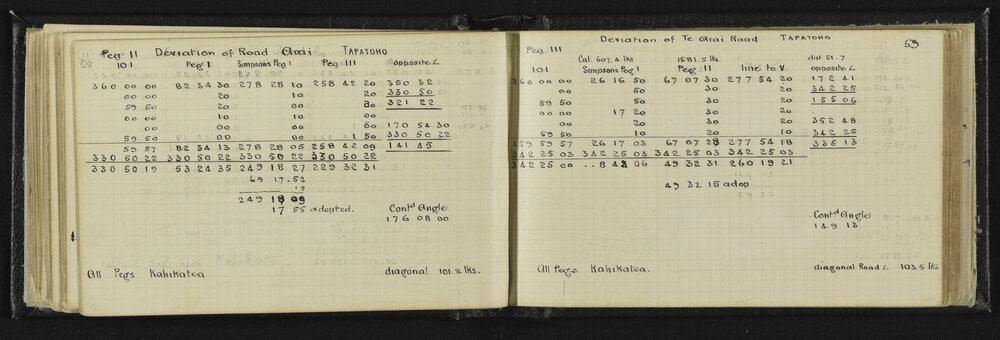 Peg II Deviation of Road Arai TAPATOHO
101 Peg I Simpsons Peg 1 Peg III opposite L
360 00 00 82 34 30 278 28 10 258 42 20 350 32
00 00 20 10 20 330 50
59 50 20 00 20 321 22
00 00 10 10 00
00 00 00 00 1 60 170 54 30
59 50 00 00 1 50 330 50 22
59 57 82 34 13 278 28 05 258 42 09 141 45
330 50 22 330 50 22 330 50 22 330 50 22
330 50 19 53 24 35 249 18 27 229 32 31
69 17 52
249 18 09
17 55 adopted. Contd Angle
176 08 00
All Pegs Kahikatea diagonal 101.2 lks.
53
Peg III Deviation of Te Arai Road TAPATOHO
Cal. 607.4 lks 1581.5 lks. dist 51.7
101 Simpsons Peg 1 Peg II line to V opposite L
360 00 00 26 16 50 67 07 30 277 54 20 172 41
00 00 50 30 20 342 25
59 50 50 30 20 155 06
00 00 17 20 20 20
00 00 20 30 20 352 48
59 50 20 20 10 342 25
359 59 57 26 17 03 67 07 28 277 54 18 335 13
342 25 03 342 25 03 342 25 03 342 25 03
342 25 00 49 32 31 260 19 21
49 32 15 adop
Contd Angle
149 13
All Pegs Kahikatea. diagonal Road L 103.5 lks